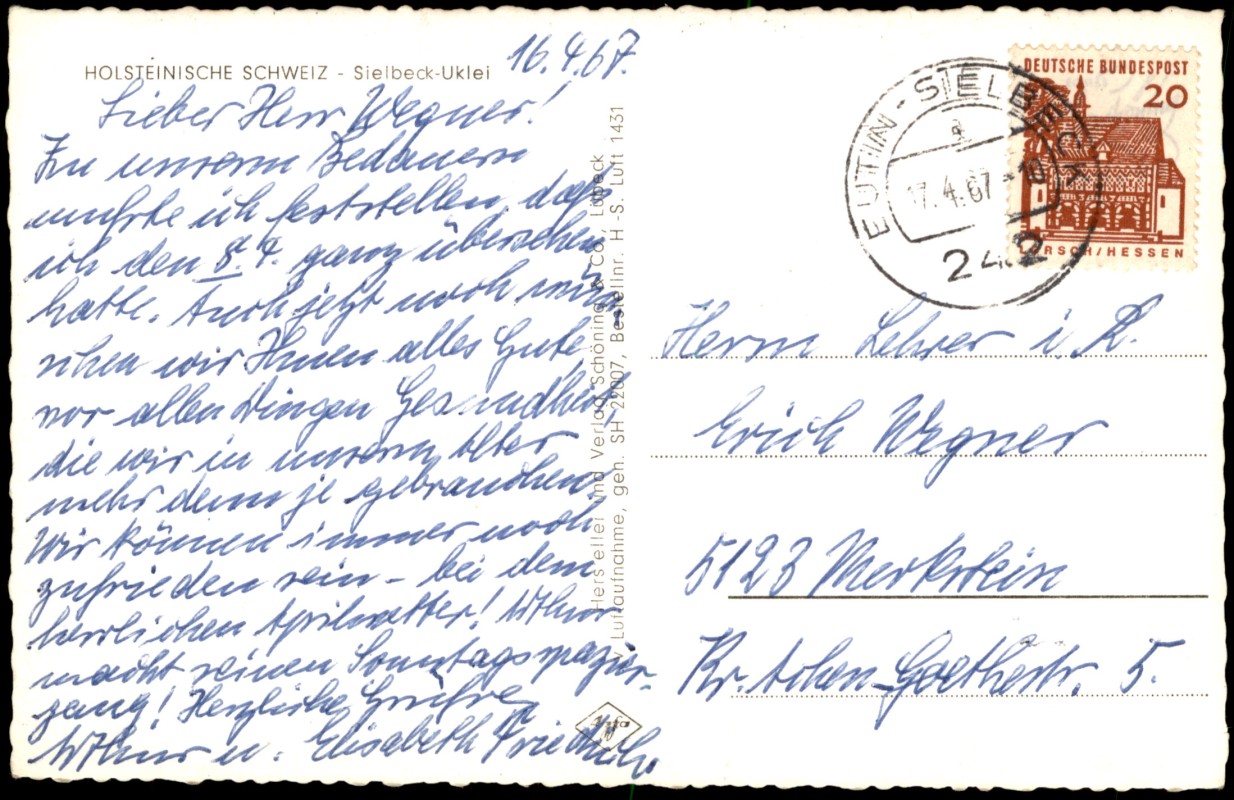 HOLSTEINISCHE SCHWEIZ - Sielbeck-Uklei
16.4.67.
Lieber Herr Wegner!
Zu unserm Bedauern
mußte ich feststellen, daß
ich den 8. 4. ganz übersehen
hatte. Auch jetzt noch wün-
schen wir Ihnen alles Gute,
vor allen Dingen Gesundheit,
die wir in unserm Alter
mehr denn je gebrauchen.
Wir können immer noch
zufrieden sein – bei dem
herrlichen Aprilwetter!
macht seinen Sonntagsspazier-
gang! Herzliche Grüße
u. Elisabeth
Hersteller und Verlag Schöning & Co., Lübeck
Luftaufnahme, gen. SH 22007, Bestellnr. H -S. Luft 1431
EUTIN-SIELBECK
a
17.4.67-10
242
DEUTSCHE BUNDESPOST
20
RSCH/HESSEN
Herrn Lehrer i. R.
Erich Wegner
5123 Merkstein
Kr. Achen Goethestr. 5.